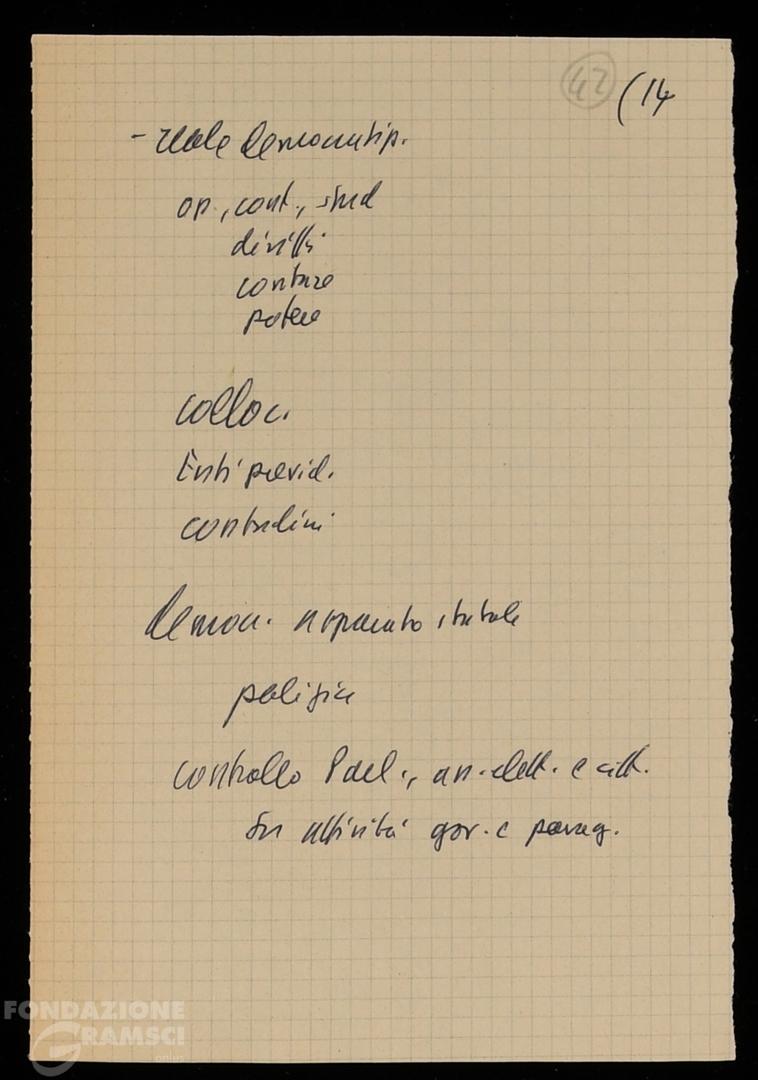 42 (14
- reale democratizz.
op., cont., stud
diritti
contare
potere
colloc.
Enti previd.
contadini
democr. apparato statale
polizia
controllo Parl., an. elett. e citt.
su attività gov. e
FONDAZIONE
GRAMSCI
onlus